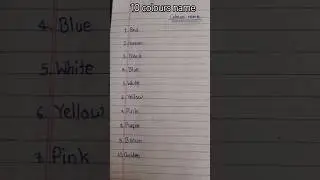 10 colours name
Colours name
1. Red
2. Green
3. Black
4. Blue
5. White
6. Yellow
7. Pink
8. Purple
9. Brown
10. Golden
4. Blue
5. White
6. Yellow
7. Pink